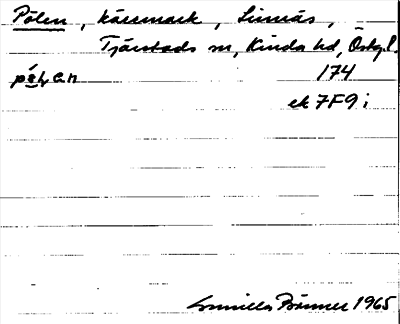 Pölen, kärrmark, Linnäs,
Tjärstads sn, Kinda hd, Östg. l.
174
ek 7F9i
Gunilla Brunner 1965